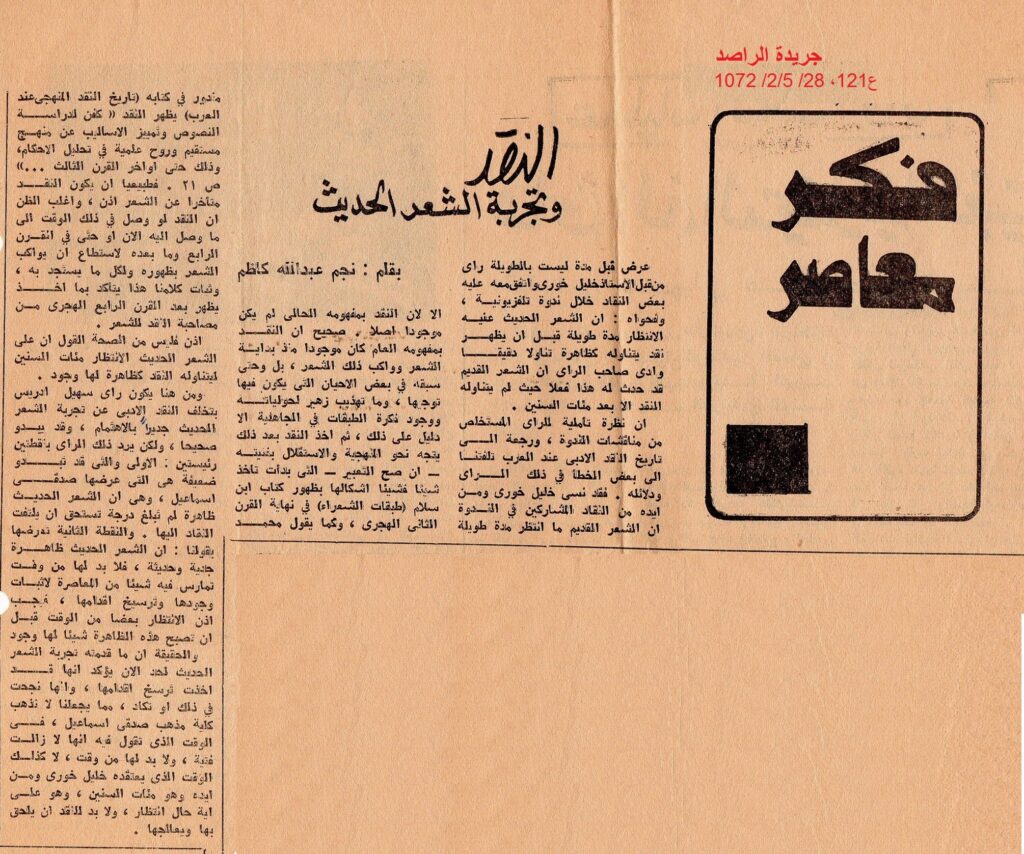 جريدة الراصد
ع121، 28/ 2/5/ 1072
فكر
معاصر
النقد
وتجربة الشعر الحديث
بقلم : نجم عبدالله كاظم
عرض قبل مدة ليست بالطويلة راى
من قبل الاستاذ خليل خورى واتفق معه عليه
بعض النقاد خلال ندوة تلفزيونية ،
وفحواه : ان الشعر الحديث عليه
الانتظار مدة طويلة قبل ان يظهر
نقد يتناوله كظاهرة تناولا دقيقا
وادى صاحب الراى ان الشعر القديم
قد حدث له هذا فعلا حيث لم يتناوله
النقد الا بعد مئات السنين .
ان نظرة تأملية للراى المستخلص
من مناقشات الندوة ، ورجعة الى
تاريخ النقد الادبى عند العرب تلفتنا
الى بعض الخطأ في ذلك الراى
ودلائله . فقد نسى خليل خورى ومن
ايده من النقاد المشاركين في الندوة
ان الشعر القديم ما انتظر مدة طويلة
الا لان النقد بمفهومه الحالى لم يكن
موجودا اصلا . صحيح ان النقد
بمفهومه العام كان موجودا منذ بداية
الشعر وواكب ذلك الشعر ، بل وحتى
سبقه في بعض الاحيان التى يكون فيها
توجيها ، وما تهذيب زهير لحولياته
ووجود فكرة الطبقات في الجاهلية الا
دليل على ذلك ، ثم اخذ النقد بعد ذلك
يتجه نحو المنهجية والاستقلال بفنيته
ــ ان صح التعبير ــ التى بدأت تاخذ
شيئا فشيئا اشكالها بظهور كتاب ابن
سلام (طبقات الشعراء) في نهاية القرن
الثانى الهجرى ، وكما يقول محمد
مندور في كتابه (تاريخ النقد المنهجى عند
العرب) يظهر النقد « كفن لدراسة
النصوص وتمييز الاساليب عن منهج
مستقيم وروح علمية في تحليل الاحكام،
وذلك حتى اواخر القرن الثالث ...»
ص ٢١ . فطبيعيا ان يكون النقد
متأخرا عن الشعر اذن ، واغلب الظن
ان النقد لو وصل في ذلك الوقت الى
ما وصل اليه الان او حتى في القرن
الرابع وما بعده لاستطاع ان يواكب
الشعر بظهوره ولكل ما يستجد به ،
وثبات كلامنا هذا يتأكد بما اخذ
يظهر بعد القرن الرابع الهجرى من
مصاحبة النقد للشعر .
اذن فليس من الصحة القول ان على
الشعر الحديث الانتظار مئات السنين
ليتناوله النقد كظاهرة لها وجود .
ومن هنا يكون راى سهيل ادريس
بتخلف النقد الادبى عن تجربة الشعر
الحديث جديرا بالاهتمام ، وقد يبدو
صحيحا ، ولكن يرد ذلك الراى بنقطتين
رئيستين : الاولى والتى قد تبدو
ضعيفة هى التى عرضها صدقى
اسماعيل ، وهى ان الشعر الحديث
ظاهرة لم تبلغ درجة تستحق ان يلتفت
النقاد اليها . والنقطة الثانية نعرضها
بقولنا : ان الشعر الحديث ظاهرة
جدية وحديثة ، فلا بد لها من وقت
تمارس فيه شيئا من المعاصرة لاثبات
وجودها وترسيخ اقدامها ، فيجب
اذن الانتظار بعضا من الوقت قبل
ان تصبح هذه الظاهرة شيئا لها وجود
والحقيقة ان ما قدمته تجربة الشعر
الحديث لحد الان يؤكد انها قد
اخذت ترسخ اقدامها ، وانها نجحت
في ذلك او تكاد ، مما يجعلنا لا نذهب
كلية مذهب صدقى اسماعيل ، فى
الوقت الذى نقول فيه انها لا زالت
فتية ، ولا بد لها من وقت ، لا كذلك
الوقت الذى يعتقده خليل خورى ومن
ايده وهو مئات السنين ، وهو على
اية حال انتظار ، ولا بد للنقد ان يلحق
بها ويعالجها .